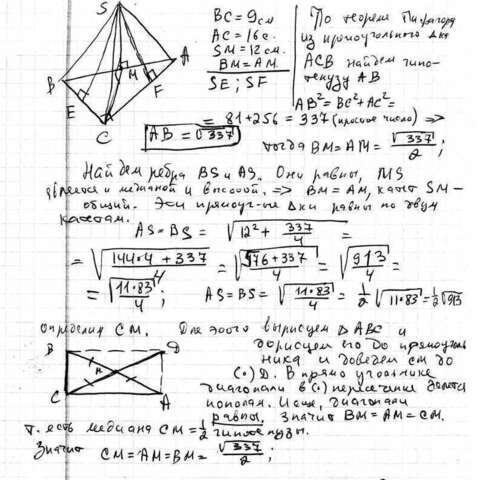 S
B
A
M
E
F
C
BC = 9см
AC = 16с.
SM = 12см.
BM = AM.
SE ; SF
По теореме Пифагора
из прямоугольного Δка
ACB найдем гипо-
тенузу AB
AB² = BC² + AC² =
= 81 + 256 = 337 (простое число) ⇒
AB = √337
тогда BM = AM = √337/2 ;
Найдем ребра BS и AS. Они равны, MS
является и медианой и высотой. ⇒ BM = AM, катет SM –
общий. Эти прямоуг-ые Δки равны по двум
катетам.
AS = BS = √(12² + 337/4) =
= √((144·4 + 337)/4) = √((576 + 337)/4) = √(913/4) =
= √(11·83/4) ; AS = BS = √(11·83/4) = ½ √(11·83) = ½√913
Определим CM. Для этого вырисуем Δ ABC и
дорисуем его до прямоуголь
ника и доведем CM до
(·) D. В прямоугольнике
диагонали в (·) пересечения делятся
пополам. И они, диагонали
равны. Значит BM = AM = CM.
B
D
M
C
A
т. есть медиана CM = ½ гипотенузы.
Значит CM = AM = BM = √337/2 ;